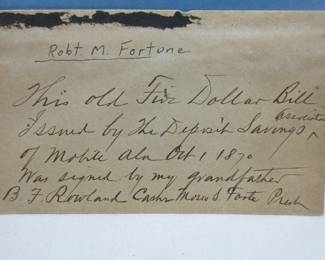 Robt. M. Fortune
This old Five Dollar Bill
Issued by the Deposit Savings Association
of Mobile Ala Oct 1, 1870
Was signed by my grandfather
B. F. Rowland Cashr Moses S. Foote Presh